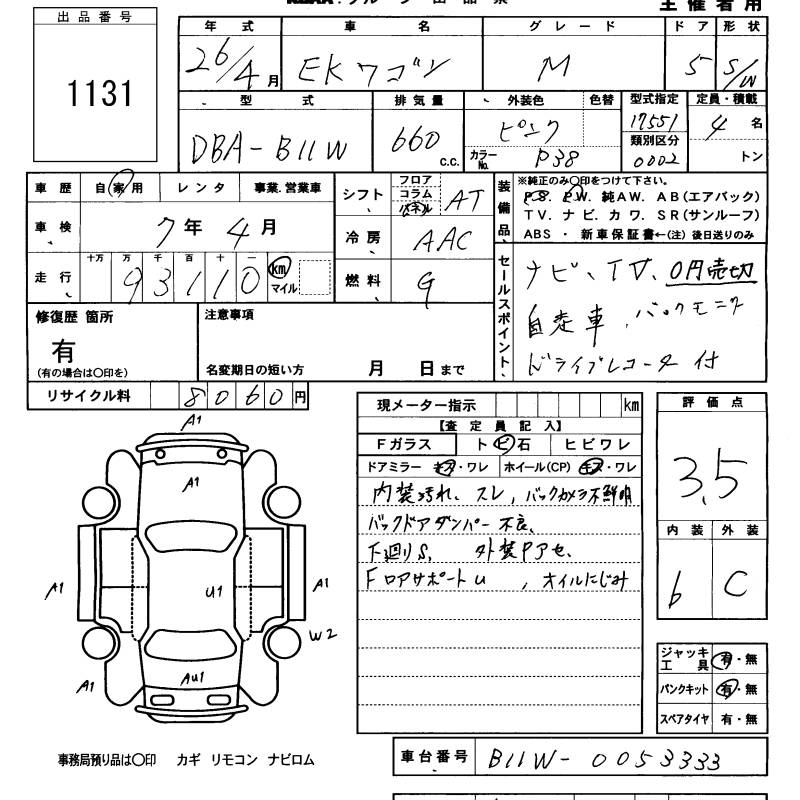 出品番号
1131
主催者用
年式 車名 グレード ドア 形状
26/4月 EKワゴン M 5 S/W
型式 排気量 外装色 色替 型式指定 定員・積載
DBA-B11W 660 c.c. ピンク 17551 4名
類別区分
カラーNo. P38 0002 トン
車歴 自家用 レンタ 事業.営業車
シフト フロア コラム パネル AT
車検 7年4月
冷房 AAC
走行 十万 万 千 百 十 一
93110 km マイル
燃料 G
装備品
※純正のみ○印をつけて下さい。
P.S. P.W. 純AW. AB(エアバック)
T V. ナ ビ. カ ワ. S R (サンルーフ)
ABS ・ 新車保証書←(注) 後日送りのみ
セールスポイント
ナビ、TV、0円売切
自走車、バックモニタ
ドライブレコーダ付
修復歴 箇所
有
(有の場合は○印を)
注意事項
名変期日の短い方 月 日まで
リサイクル料 8060円
現メーター指示 km
【査定員記入】
Fガラス トビ石 ヒビワレ
ドアミラー キズ・ワレ ホイール(CP) キズ・ワレ
内装汚れ、スレ，バックカメラ不鮮明
バックドアダンパー不良、
下廻りS、 外装Pアセ、
Fロアサポートu ，オイルにじみ
評価点
3.5
内装 外装
b C
ジャッキ工具 有・無
パンクキット 有・無
スペアタイヤ 有・無
A1
A1
A1 U1 A1
W2
A1 AU1
事務局預り品は○印 カギ リモコン ナビロム
車台番号 B11W-0053333